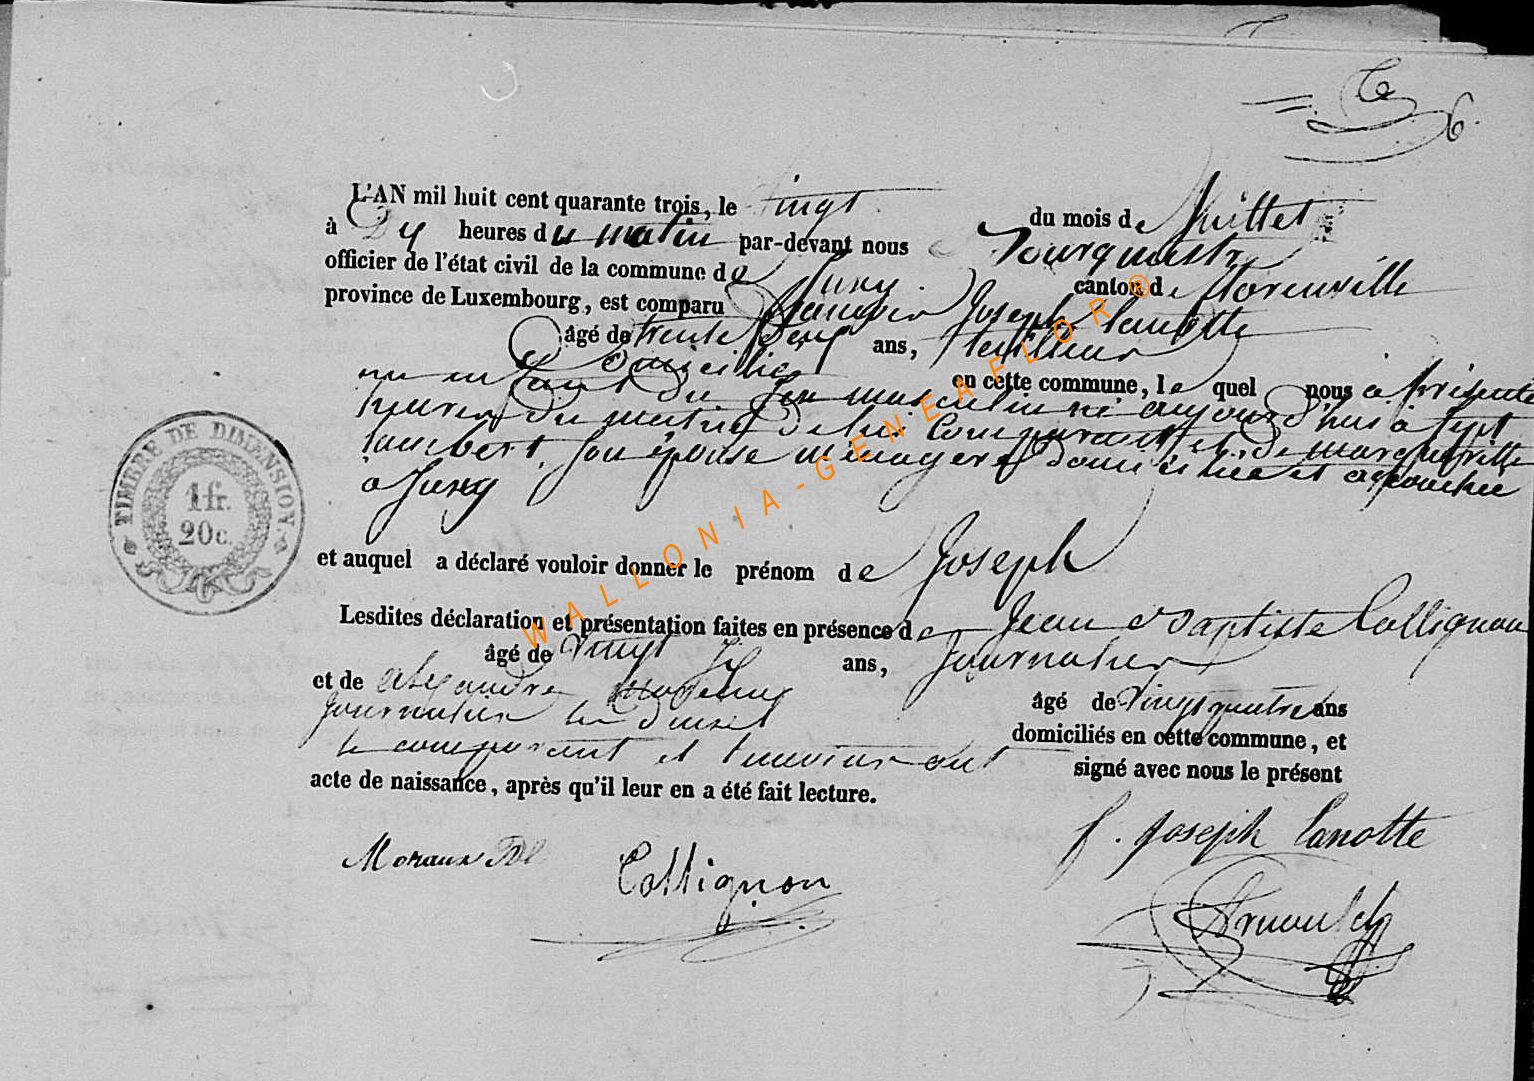 6.
L'AN mil huit cent quarante trois, le vingt du mois de Juillet
à Dix heures du matin par-devant nous
officier de l'état civil de la commune de canton de
province de Luxembourg, est comparu François Joseph Lanotte
âgé de trente ans, tailleur
domicilié en cette commune, lequel nous a présenté
un enfant du sexe masculin né aujourd'hui à sept
heures du matin de lui comparant et de marguerite
Lambert, son épouse ménagère domiciliée et accouchée
à
et auquel a déclaré vouloir donner le prénom de Joseph
Lesdites déclaration et présentation faites en présence de Jean Baptiste Collignon
âgé de vingt ans, Journalier
et de alexandre âgé de vingt quatre ans
journalier domiciliés en cette commune, et
le comparant et témoins ont signé avec nous le présent
acte de naissance, après qu'il leur en a été fait lecture.
f. Joseph Lanotte
Moraux
Collignon
TIMBRE DE DIMENSION
1 fr.
20 c.
WALLONIA-GENEAFLOR©